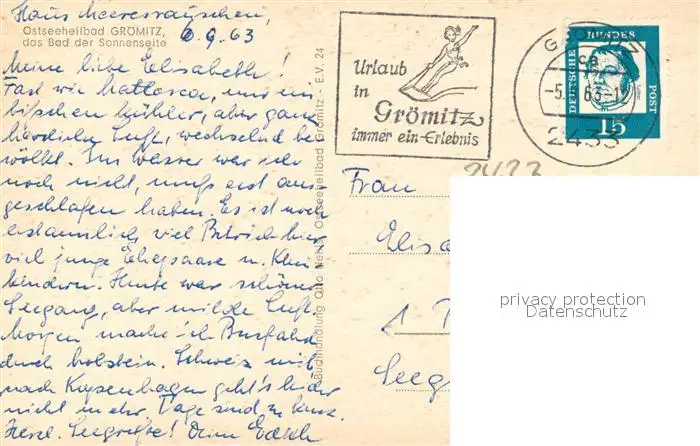 Haus Meeresrauschen,
Ostseeheilbad GRÖMITZ,
das Bad der Sonnenseite
6.9.63
Meine liebe Elisabeth!
Fast wie Mallorca, nur ein
bißchen kühler, aber ganz
herrliche Luft, wechselnd be
wölkt. Im Wasser war ich
noch nicht, muß erst aus-
geschlafen haben. Es ist noch
erstaunlich viel Betrieb hier
viel junge Ehepaare u. Klein
kindern. Heute war schöner
Seegang, aber milde Luft.
Morgen mache ich Busfahrt
durch holstein. Schweiz mit
nach Kopenhagen geht's leider
nicht mehr, Tage sind zu kurz.
Herzl. Seegrüße! Deine
Buchhandlung Otto Ostseeheilbad Grömitz - E.V. 24
Urlaub
in
Grömitz
immer ein Erlebnis
GRÖMITZ
-5. 63-12
2433
DEUTSCHE BUNDES POST
15
2433
Frau
Elisa
1
Seeg
privacy protection
Datenschutz